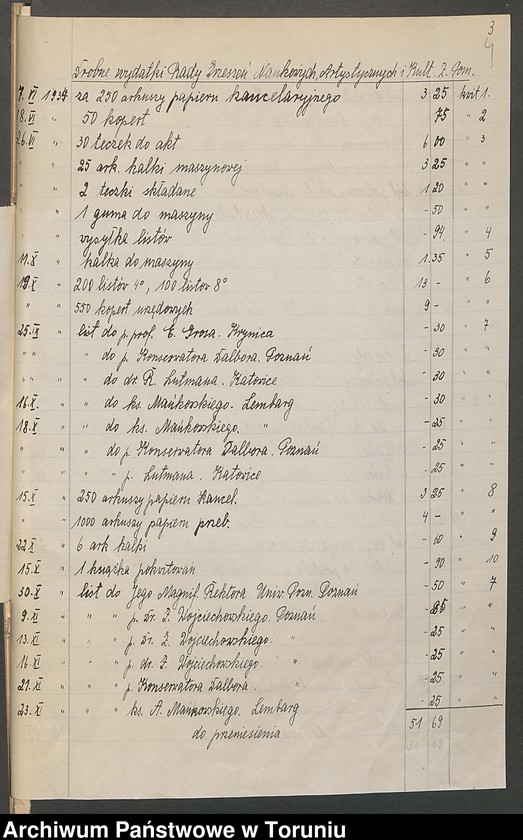 3
4
Drobne wydatki Rady Zrzeszeń Naukowych, Artystycznych i Kult. Z. Pom.
7. VI 1934 za 250 arkuszy papieru kancelaryjnego 3 25 kwit 1.
18. VI " 50 kopert 75 " 2
26. VI " 30 teczek do akt 6 00 " 3
" " 25 ark. kalki maszynowej 3 25 " "
" " 2 teczki składane 1 20 " "
" " 1 guma do maszyny - 50 " "
" " wysyłka listów - 94 " 4
11. X " kalka do maszyny 1.35 " 5
19. X " 200 listów 4°, 100 listów 8° 13 - " 6
" " 550 kopert urzędowych 9 - " "
25. IX " list do p. prof. E. Krynica - 30 " 7
" " " " do p. Konserwatora Dalbora. Poznań - 30 " "
" " " " do dr. R. Lutmana. Katowice - 30 " "
16. X. " " do ks. Mańkowskiego. Lembarg - 30 " "
18. X " " do ks. Mańkowskiego. " - 25 " "
" " " do p. Konserwatora Dalbora. Poznań - 25 " "
" " " " p. Lutmana. Katowice - 25 " "
15. X " 250 arkuszy papieru kancel. 3 25 " 8
" " 1000 arkuszy papieru przeb. 4 - " "
22. X " 6 ark kalki - 60 " 9
15. X " 1 książka pokwitowań - 90 " 10
30. X " list do Jego Magnif. Rektora Univ. Pozn. Poznań - 50 " 7
9. XI " " " p. Dr. Z. Wojciechowskiego. Poznań - 25 " "
13. XI " " " p. Dr. Z. Wojciechowskiego. " - 25 " "
16. XI " " " p. dr. Z. Wojciechowskiego. " - 25 " "
21. XI " " " p. Konserwatora Dalbora. " - 25 " "
23. XI " " " ks. A. Mańkowskiego. Lembarg - 25 " "
do przeniesienia 51 69
Archiwum Państwowe w Toruniu